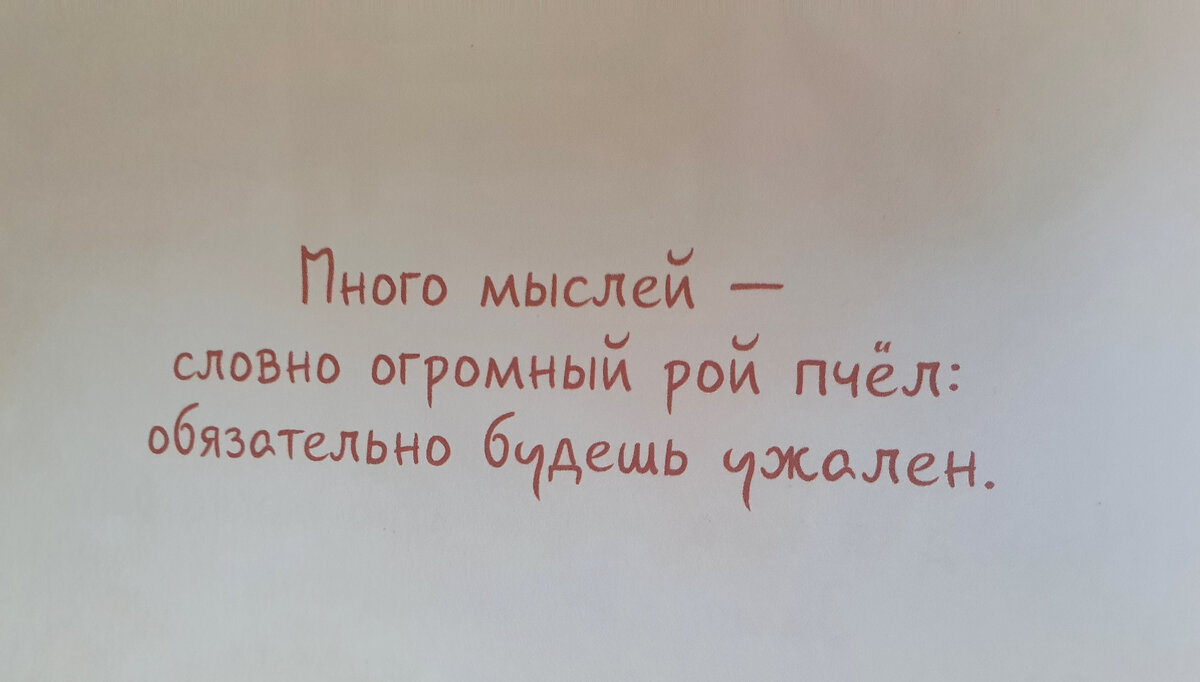 Много мыслей —
словно огромный рой пчёл:
обязательно будешь ужален.